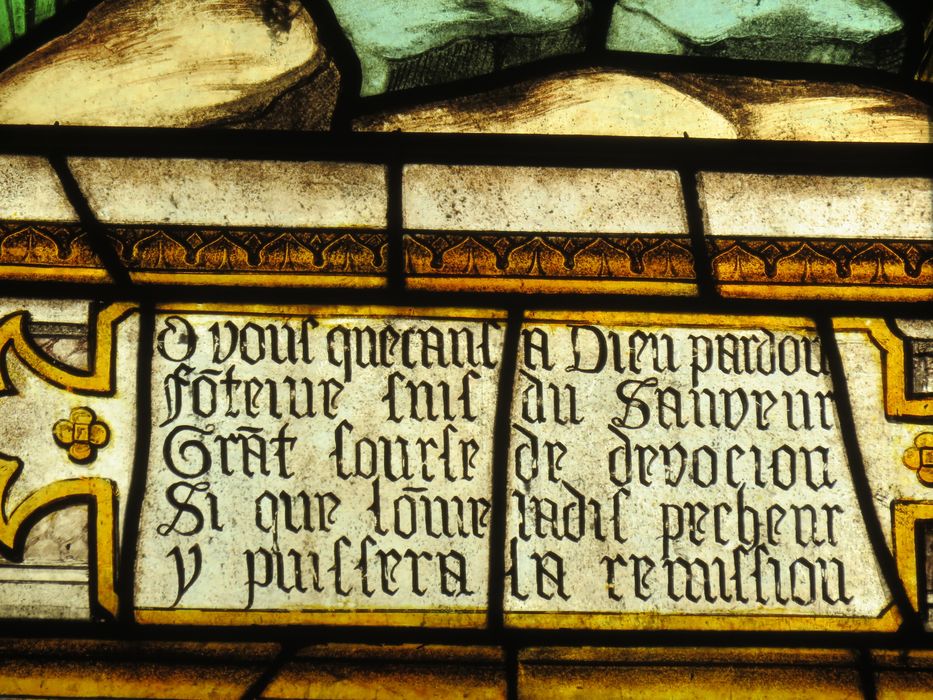 O vous quecans a Dieu pardon
fōteine suis du Sauveur
Grāt sourse de devocion
Si que lōme iadis pecheur
y puissera sa remission